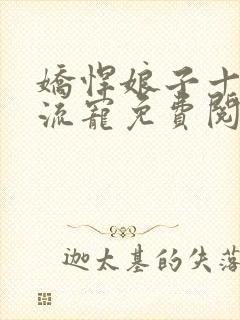 嬌悍娘子十
流寵免費閱
迦太基的失落